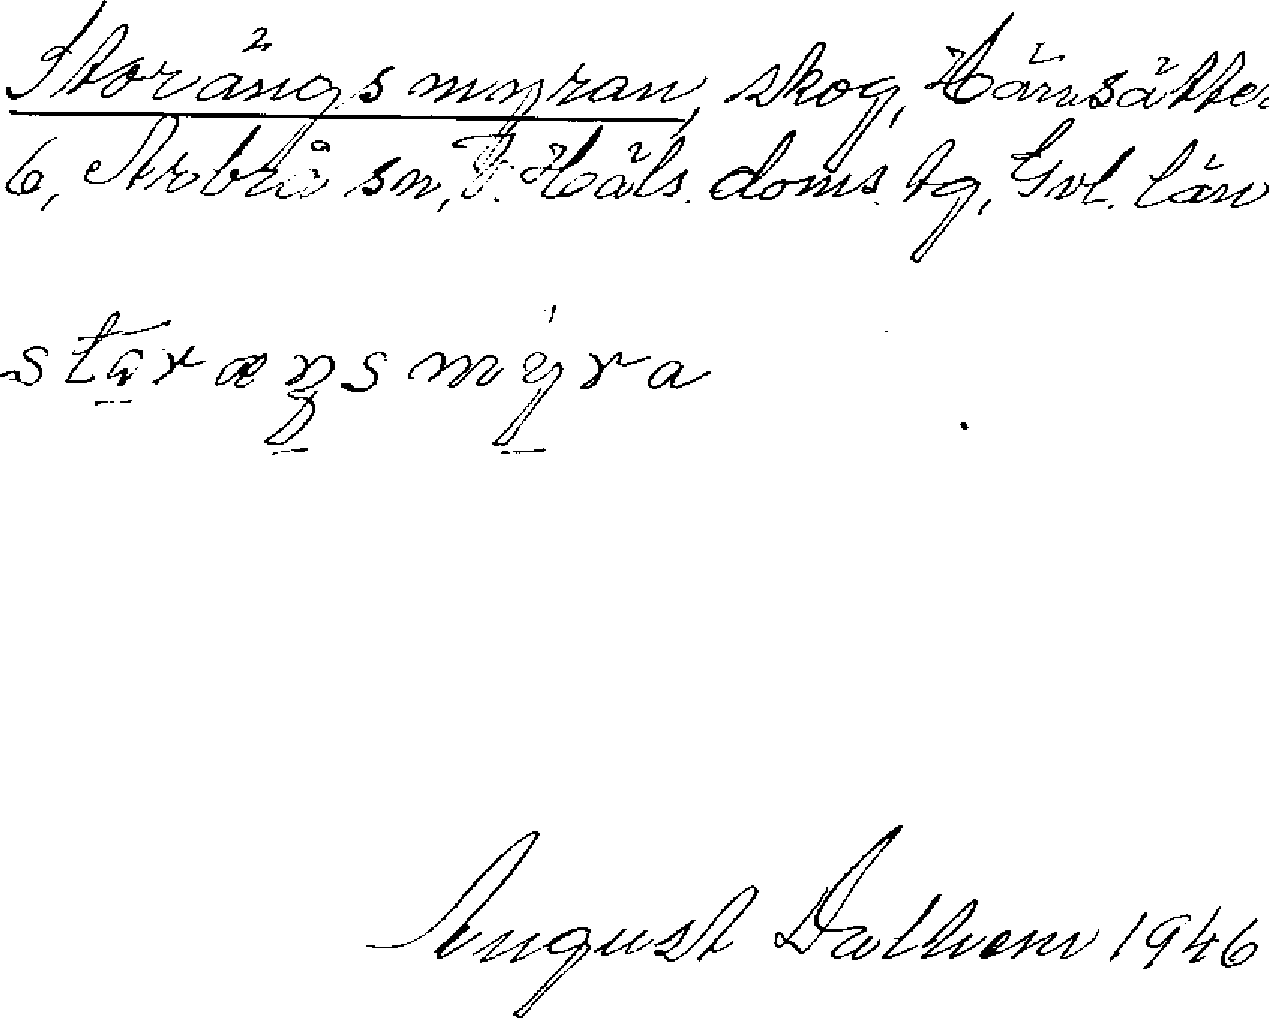 Storängsmyran, skog, Härnsätter
6, Arbrå sn, V. Häls. doms. tg, Gvl. län
staræŋsmýra
August Dalhem 1946